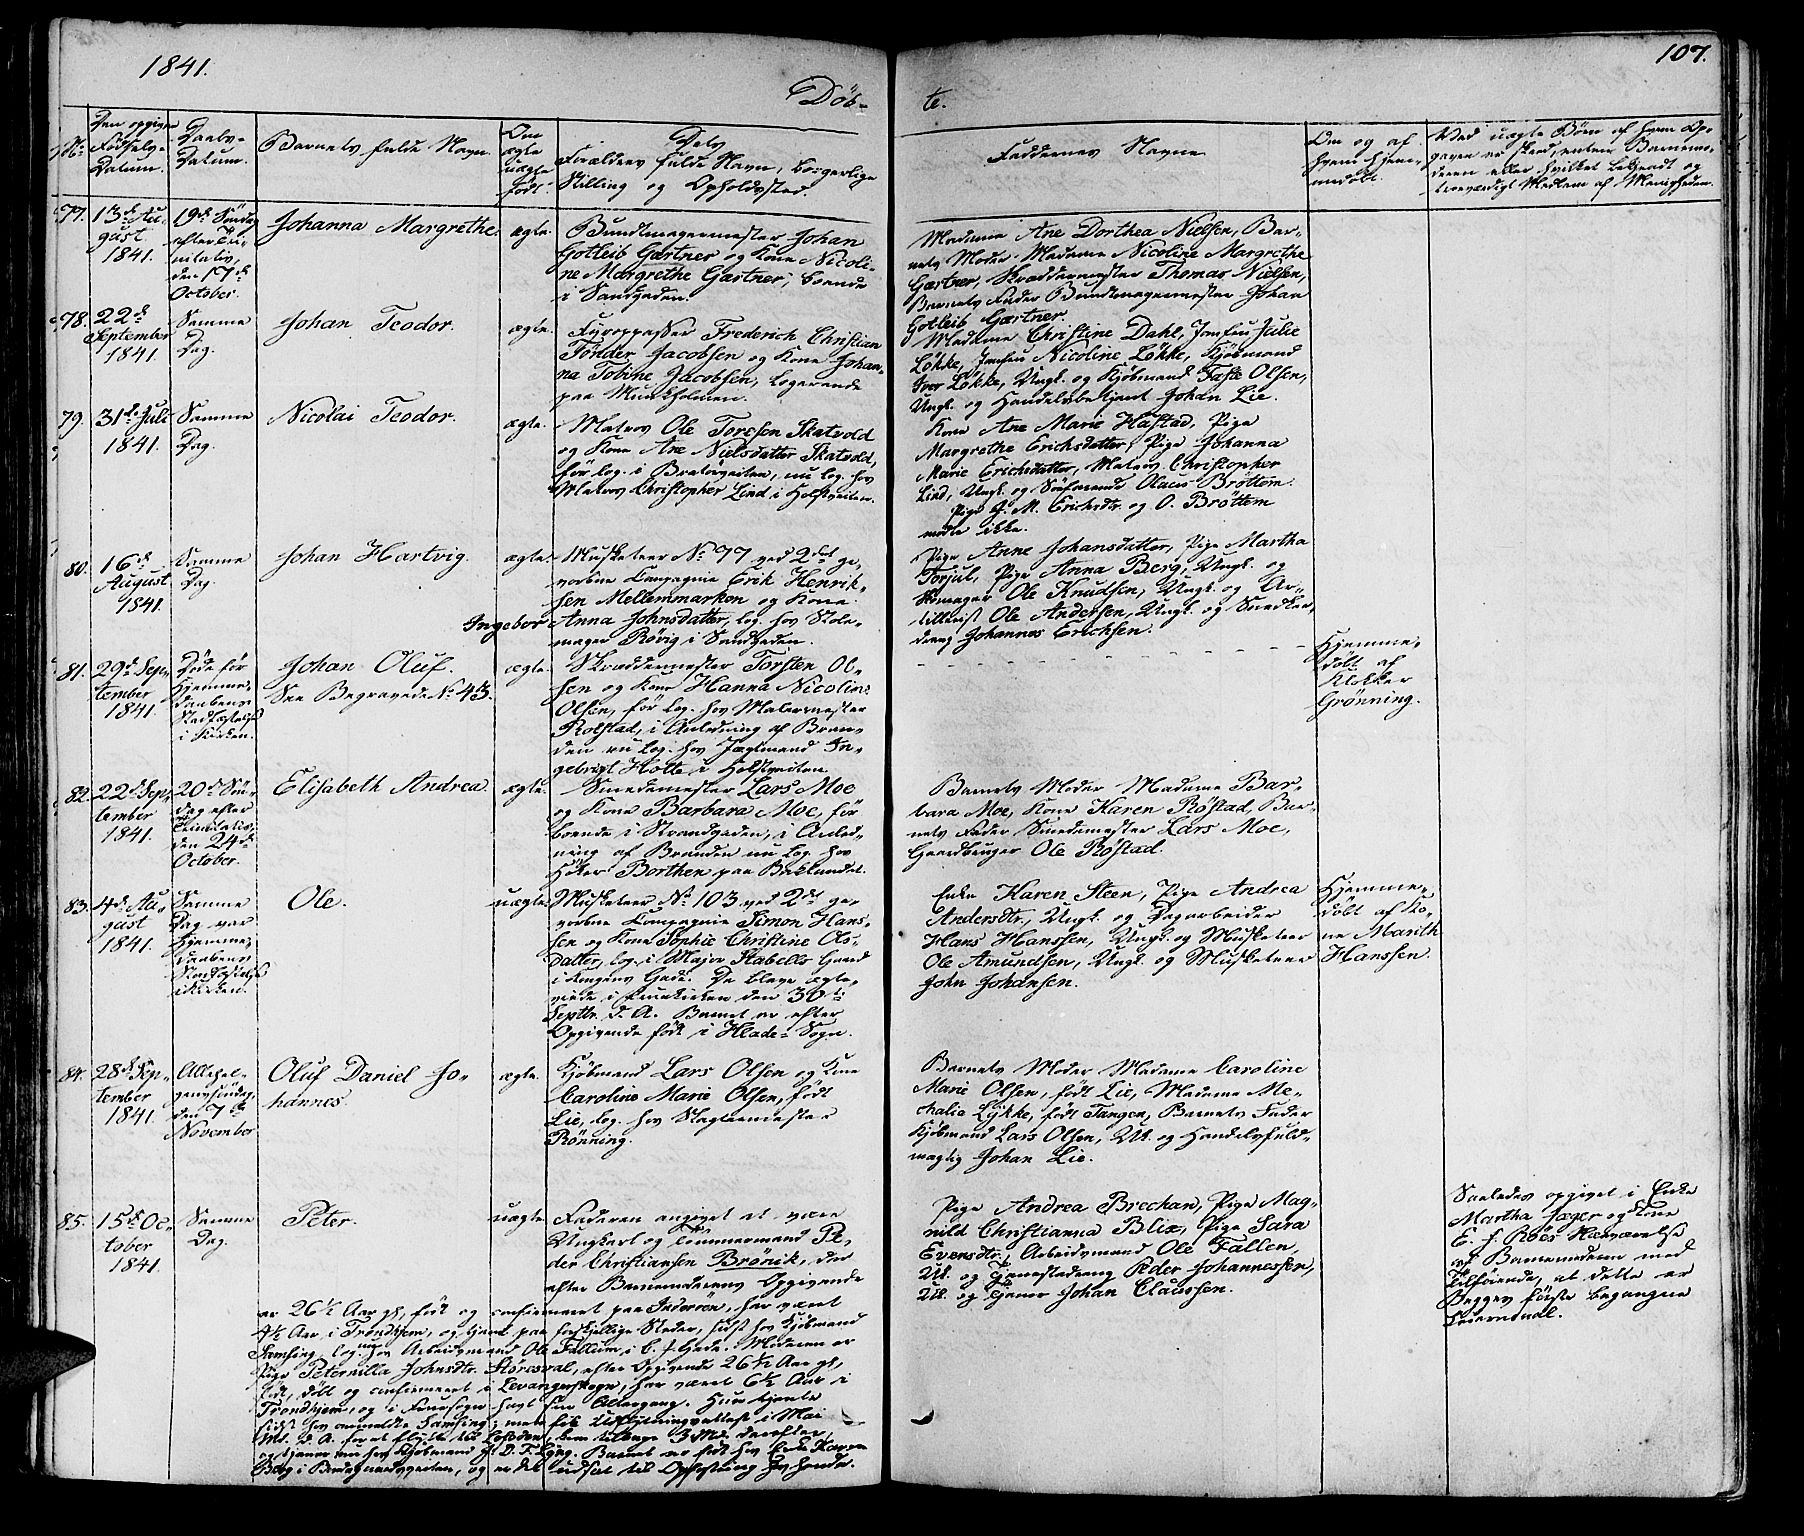 1841.
107.
Döb-
te.
No
Den opgivne
Fødsels-
Datum.
Daabs-
Datum.
Barnets fulde Navn
Om
ægte
uægte
født.
Dets
Forældres fulde Navn, borgerlige
Stilling og Opholdssted
Faddernes Navne
Om og af
hvem hjem-
medøbt.
Ved uægte Børn af hvem Op-
given er skeed, enten Barnemo-
deren eller hvilket bekjendt og
troværdigt Medlem af Menigheden.
77.
13de Au-
gust
1841.
19de Søndag
efter Tri-
nitatis,
den 17de
October.
Johanna Margrethe.
ægte.
Bundtmagermester Johan
Gotleib Gærtner og Kone Nicoli-
ne Margrethe Gærtner, boende
i Sandgaden.
Madame Ane Dorthea Nielsen, Bar-
nets Moder Madame Nicoline Margrethe
Gærtner, Skræddermester Thomas Nielsen,
Barnets Fader Bundtmagermester Johan
Gotleib Gærtner.
78.
22de
September
1841.
Samme
Dag.
Johan Teodor.
ægte.
Fyropasser Frederich Christian
Tønder Jacobsen og Kone Johan-
na Tobine Jacobsen, logerende
paa Munkholmen.
Madame Christine Dahl, Jomfru Julie
Løkke, Jomfru Nicoline Løkke, Kjøbmand
Iver Løkke, Ungk. og Kjøbmand Faste Olsen,
Ungk. og Handelsbetjent Johan Lie.
79.
31te Juli
1841.
Samme
Dag.
Nicolai Teodor.
ægte.
Matros Ole Toresen Skatvold
og Kone Ane Nielsdatter Skatvold,
før log. i Bratørveiten, nu log. hos
Matros Christopher Lind i Holstveiten.
Kone Ane Marie Hastad, Pige
Margrethe Erichsdatter, Pige Johanna
Marie Erichsdatter, Matros Christopher
Lind, Ungk. og Søfarende Olaus Bröttem.
Pige J. M. Erichsdtr. og O. Bröttem
mødte ikke.
80.
16de
August
1841.
Samme
Dag.
Johan Hartvig.
ægte.
Musketeer No 77 ved 2det ge-
vorbne Compagnie Erik Henrik-
sen Mellemmarken og Kone
Ingebor Anna Johnsdatter, log. hos Stole-
mager Rövig i Sandgaden.
Pige Anne Johansdatter, Pige Martha
Torjul, Pige Anna Berg, Ungk. og
Skomager Ole Knudsen, Ungk. og Ar-
tillerist Ole Andersen, Ungk. og Snedker-
dreng Johannes Erichsen.
81.
29de Sep-
tember
1841.
Døde før
Hjemme-
daabens
Stadfæstelse
i Kirken.
Johan Oluf.
See Begravede No 43.
ægte.
Skræddermester Torsten Ol-
sen og Kone Hanna Nicoline
Olsen, før log. hos Malermester
Rolstad, i Anledning af Bran-
den nu log. hos Jægtmand In-
gebrigt Hotte i Holstveiten.
Hjemme-
døbt af
Klokker
Grönning.
82.
22de Sep-
tember
1841.
20de Søn-
dag efter
Trinitatis,
den 24de
October.
Elisabeth Andrea.
ægte.
Smedemester Lars Moe
og Kone Barbara Moe, før
boende i Strandgaden, i Anled-
ning af Branden nu log. hos
Høker Borthen paa Baklandet.
Barnets Moder Madame Bar-
bara Moe, Kone Karen Röstad, Bar-
nets Fader Smedemester Lars Moe,
Gaardbruger Ole Röstad.
83.
4de Au-
gust
1841.
Samme
Dag var
Hjemme-
daabens
Stadfæstelse
i Kirken.
Ole.
uægte.
Musketeer No 103 ved 2det ge-
vorbne Compagnie Simon Hans-
sen og Kone Sophie Christine Ols-
datter, log. i Major Stabells Gaard
i Kongens Gade. De bleve ægte-
viede i Fruekirken den 30te
Septbr. d. A. Barnet er efter
Opgivende født i Hlade-Sogn.
Enke Karen Steen, Pige Andrea
Andersdtr., Ungk. og Dagarbeider
Hans Hanssen, Ungk. og Musketeer
Ole Amundsen, Ungk. og Musketeer
John Johansen.
Hjemme-
døbt af Ko-
ne Marith
Hanssen.
84.
28de Sep-
tember
1841.
Allehel-
gensöndag,
den 7de
November
Oluf Daniel Jo-
hannes.
ægte.
Kjøbmand Lars Olsen og Kone
Caroline Marie Olsen, født
Lie, log. hos Slagtermester
Rönning.
Barnets Moder Madame Caroline
Marie Olsen, født Lie, Madame Me-
thalia Lykke, født Tangen, Barnets Fader
Kjøbmand Lars Olsen, Uk. og Handelsfuld-
mægtig Johan Lie.
85.
15de Oc-
tober
1841.
Samme
Dag.
Peter.
uægte.
Faderen angivet at være
Ungkarl og Tömmermand Pe-
der Christiansen Brönik, der
efter Barnemoderens Opgivende
er 26½ Aar gl, født og confirmeret paa Inderöen, har været
4½ Aar i Trondhjem, og tjent paa forskjellige Steder, sidst hos Kjøbmand
Samsing, log. nu hos Arbeidsmand Ole Fallium i C. J. Gade. Moderen er
Pige Peternilla Johnsdtr. Störesval, efter Opgivende 26½ Aar gl.,
født, døbt og confirmeret i Levangerskogn, har været 6½ Aar i
Trondhjem, og i Fruesogn havt sin Altergang. Hun tjente
sidst hos anmeldte Samsing; men fik Udflytningsattest i Mai
Md. d. A. for at flytte til Lofoden, kom tilbage 3 Md. derefter,
tjener nu hos Kjøbmand H. D. F. Lyng. Barnet er født hos Enke Karen
Berg i Bødegaardsveiten, og er det udsat til Opfostring hos hende.
Pige Andrea Brechan, Pige Mag-
nild Christianna Blix, Pige Sara
Evensdtr., Arbeidsmand Ole Fallen,
Uk. og Tjenestedreng Peder Johannessen,
Uk. og Tjener Johan Claussen.
Saaledes opgivet i Enke
Martha Jæger og Kone
E. J. Röes Nærværelse
af Barnemoderen med
Tilføiende, at dette er
Begges første begangne
Leiermaal.